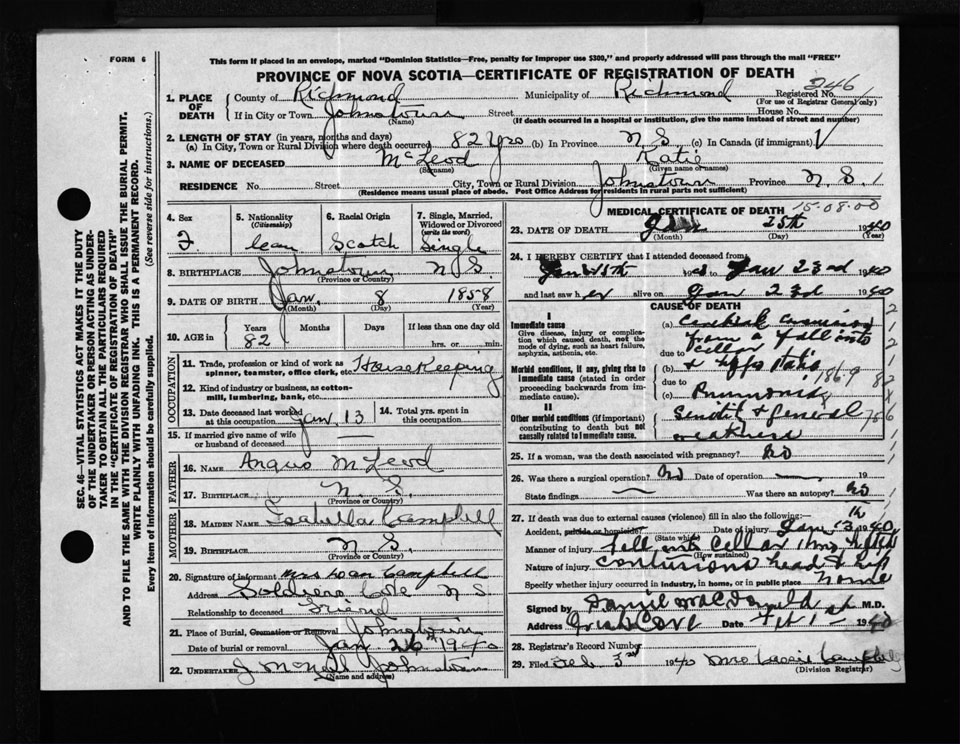 FORM 6
This form if placed in an envelope, marked "Dominion Statistics—Free, penalty for improper use $300," and properly addressed will pass through the mail "FREE"
PROVINCE OF NOVA SCOTIA—CERTIFICATE OF REGISTRATION OF DEATH
246
1. PLACE OF DEATH
County of Richmond Municipality of Richmond Registered No.
(For use of Registrar General only)
If in City or Town Johnstown Street House No.
(Name) (If death occurred in a hospital or institution, give the name instead of street and number)
2. LENGTH OF STAY (in years, months and days)
(a) In City, Town or Rural Division where death occurred 82 Yrs (b) In Province N S (c) In Canada (if immigrant)
3. NAME OF DECEASED McLeod Katie
(Surname) (Given name or names)
RESIDENCE No. Street City, Town or Rural Division Johnstown Province N. S.
(Residence means usual place of abode. Post Office Address for residents in rural parts not sufficient)
4. Sex F
5. Nationality (Citizenship) Can
6. Racial Origin Scotch
7. Single, Married, Widowed or Divorced (write the word) Single
8. BIRTHPLACE Johnstown N S.
(Province or Country)
9. DATE OF BIRTH Jan. 8 1858
(Month) (Day) (Year)
10. AGE in Years 82 Months Days If less than one day old hrs. or min.
OCCUPATION
11. Trade, profession or kind of work as spinner, teamster, office clerk, etc. House Keeping
12. Kind of industry or business, as cotton-mill, lumbering, bank, etc.
13. Date deceased last worked at this occupation Jan 13
14. Total yrs. spent in this occupation
15. If married give name of wife or husband of deceased —
FATHER
16. NAME Angus McLeod
17. BIRTHPLACE N. S.
(Province or Country)
MOTHER
18. MAIDEN NAME Isabella Campbell
19. BIRTHPLACE N S.
(Province or Country)
20. Signature of informant Mrs Dan Campbell
Address Soldiers Cove N S
Relationship to deceased Friend
21. Place of Burial, Cremation or Removal Johnstown
Date of burial or removal Jan 26 1940
22. UNDERTAKER J McNeil Johnstown
(Name and address)
MEDICAL CERTIFICATE OF DEATH 15-08-00
23. DATE OF DEATH Jan 25th 1940
(Month) (Day) (Year)
24. I HEREBY CERTIFY that I attended deceased from
Jan 23rd 1940
and last saw her alive on Jan 23d 1940
CAUSE OF DEATH
I
Immediate cause
Give disease, injury or complication which caused death, not the mode of dying, such as heart failure, asphyxia, asthenia, etc.
(a) from a fall into
due to cellar
Morbid conditions, if any, giving rise to immediate cause (stated in order proceeding backwards from immediate cause).
(b)
due to 186-9
(c) Pneumonia
II
Other morbid conditions (if important) contributing to death but not causally related to immediate cause.
& general
weakness
25. If a woman, was the death associated with pregnancy? No
26. Was there a surgical operation? No Date of operation 19
State findings Was there an autopsy? No
27. If death was due to external causes (violence) fill in also the following:—
Accident, suicide or homicide? Date of injury Jan 13 1940
(State which)
Manner of injury Fell into cellar
(How sustained)
Nature of injury Contusions head & hip
Specify whether injury occurred in industry, in home, or in public place home
Signed by Daniel MacDonald M.D.
Address Irish Cove Date Feb 1 1940
28. Registrar's Record Number
29. Filed Feb 3rd 1940 Mrs Cassie Campbell
(Division Registrar)
SEC. 46—VITAL STATISTICS ACT MAKES IT THE DUTY OF THE UNDERTAKER OR PERSON ACTING AS UNDERTAKER TO OBTAIN ALL THE PARTICULARS REQUIRED IN THE "CERTIFICATE OF REGISTRATION OF DEATH" AND TO FILE THE SAME WITH THE DIVISION REGISTRAR WHO SHALL ISSUE THE BURIAL PERMIT.
WRITE PLAINLY WITH UNFADING INK. THIS IS A PERMANENT RECORD.
Every item of information should be carefully supplied. (See reverse side for instructions.)